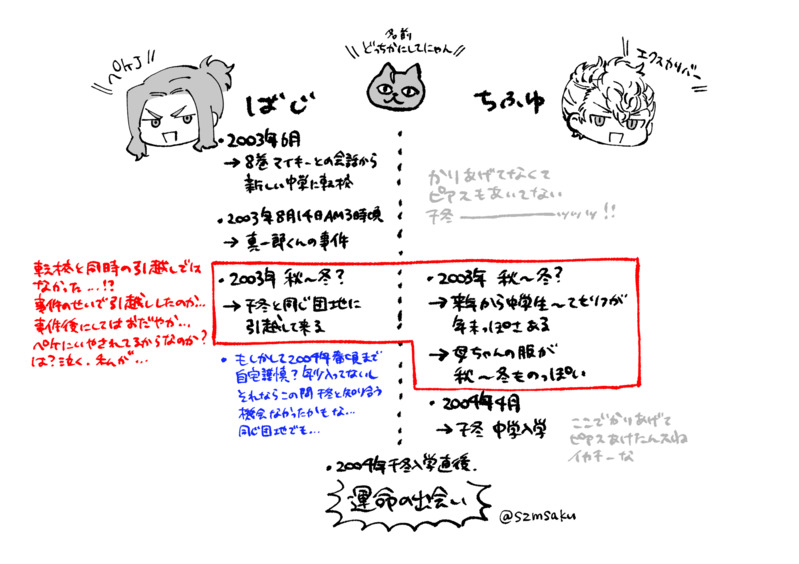 名前
どっちかにしてにゃん
ペケJ
エクスカリバー
ばじ
ちふゆ
・2003年6月
→8巻マイキーとの会話から
新しい中学に転校
・2003年8月14日AM3時頃
→真一郎くんの事件
かりあげてなくて
ピアスもあいてない
千冬――――ッッッ!!
転校と同時の引越しでは
なかった…!?
事件のせいで引越ししたのか…
事件後にしてはおだやか…
ペケにいやされてるからなのか?
は?泣く。私が…
・2003年 秋〜冬?
→千冬と同じ団地に
引越して来る
・2003年 秋〜冬?
→来年から中学生〜てセリフが
年末っぽさある
→母ちゃんの服が
秋〜冬ものっぽい
・もしかして2004年春頃まで
自宅謹慎?年少入ってないし
それならこの間千冬と知り合う
機会なかったかもな…
同じ団地でも…
・2004年4月
→千冬 中学入学
ここでかりあげて
ピアスあけたんスね
イカチーな
・2004年千冬入学直後.
運命の出会い
@szmsaku